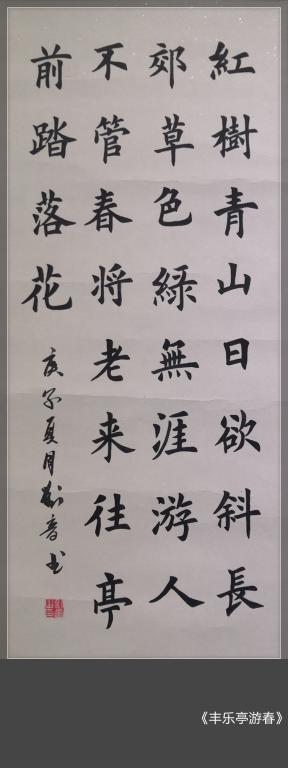 紅樹青山日欲斜長
郊草色綠無涯游人
不管春将老来往亭
前踏落花
庚子夏月
《丰乐亭游春》